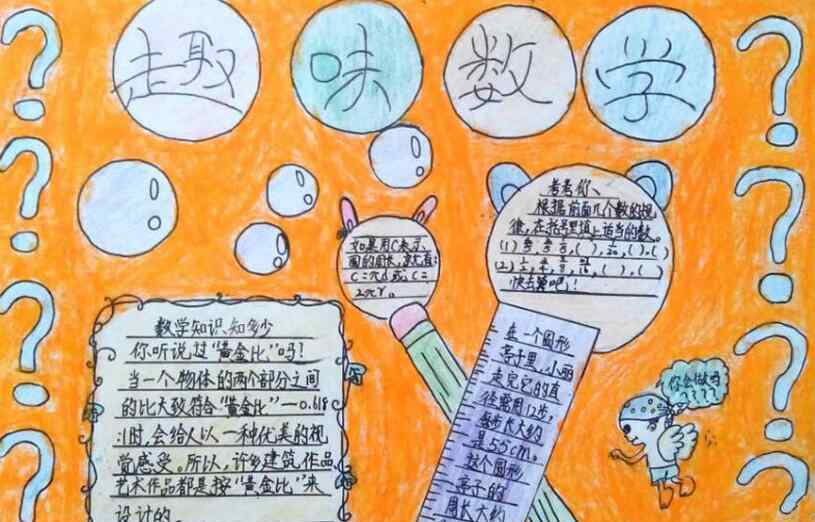 趣味数学
如果用C表示
圆的周长,就有:
C=πd或C=
2πr。
考考你、
根据前面几个数的规
律,在括号里填上适当的数。
(1)
(2)
快去算吧!
数学知识知多少
你听说过“黄金比”吗?
当一个物体的两个部分之间
的比大致符合“黄金比”—0.618
:1时,会给人以一种优美的视
觉感受。所以,许多建筑作品
艺术作品都是按“黄金比”来
设计的。
在一个圆形
亭子里,小丽
走完它的直
径需用12步,
每步长大约
是55cm。
这个圆形
亭子的
周长大约
你会做吗
????